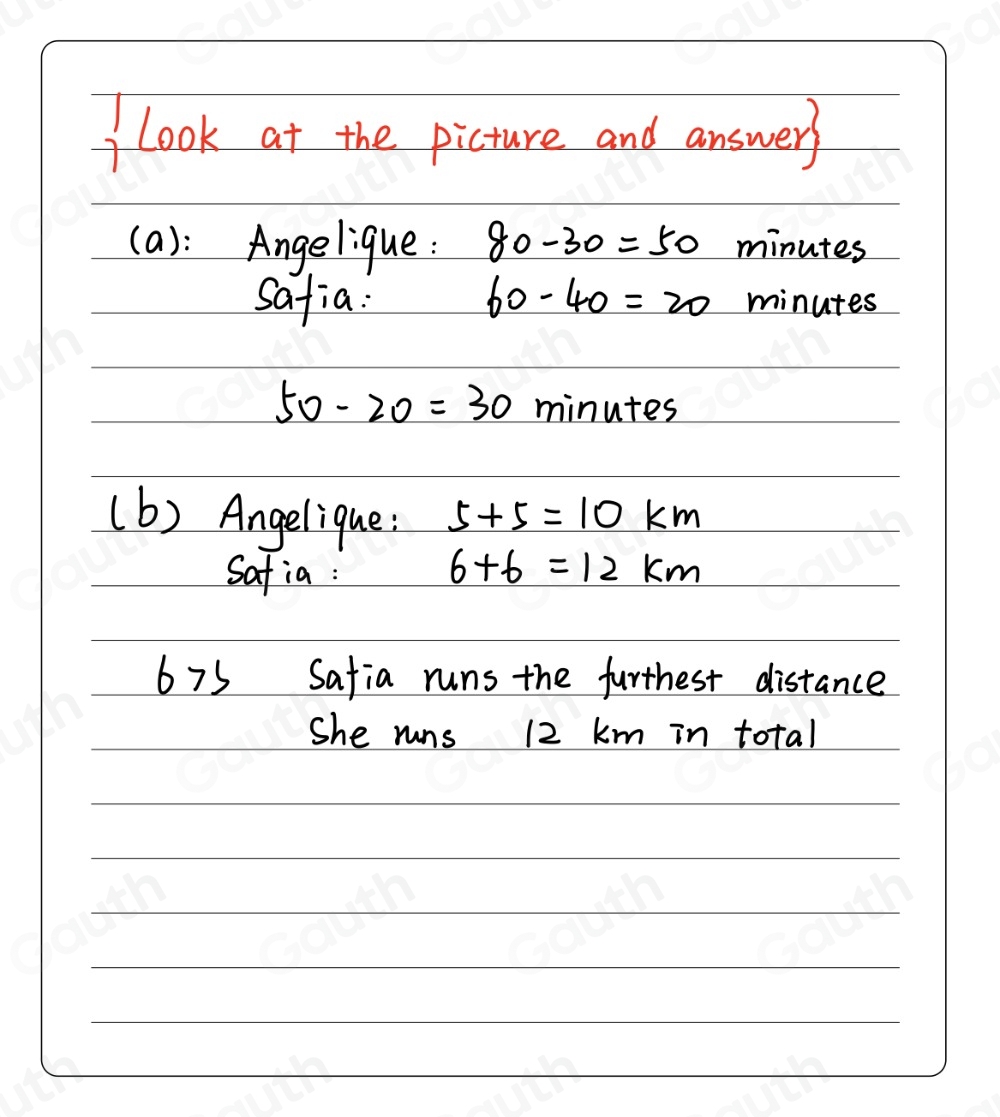 {Look at the picture and answer}
(a): Angelique: 80-30=50 minutes
Safia: 60-40=20 minutes
50-20=30 minutes
(b) Angelique: 5+5=10 km
Safia: 6+6=12 km
6>5 Safia runs the furthest distance
She runs 12 km in total
Gauth